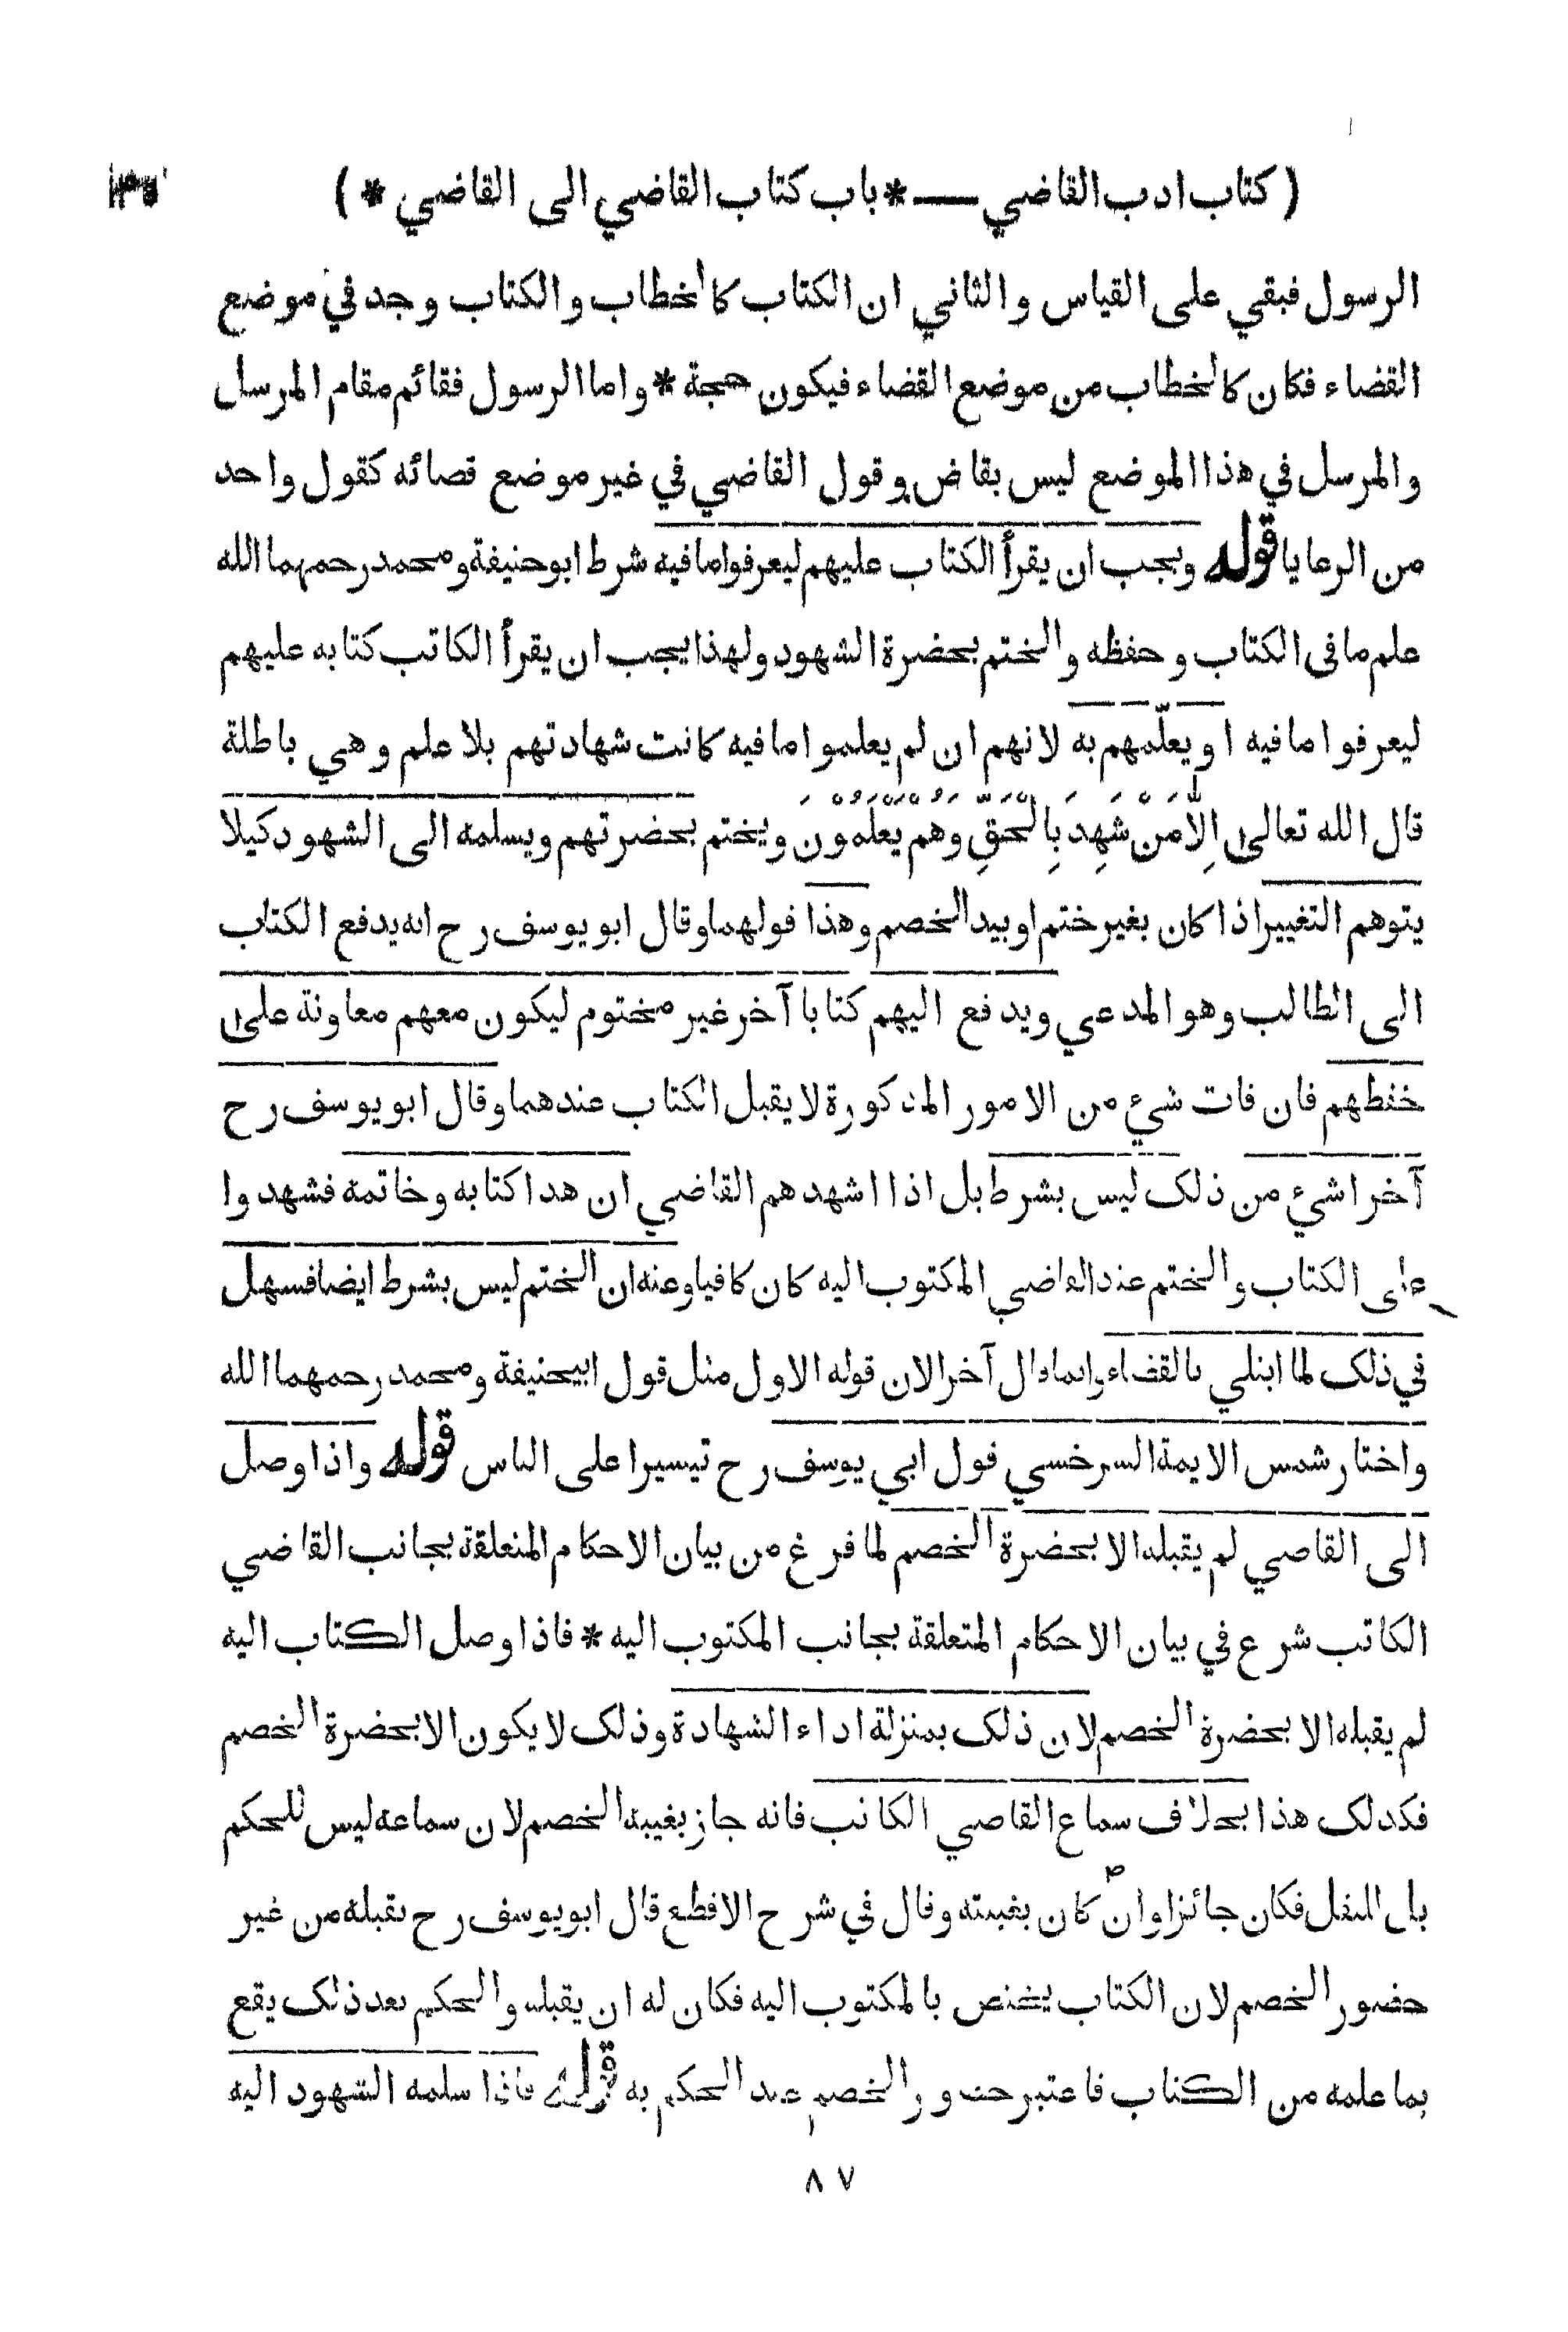 ( كتاب ادب القاضي — * باب كتاب القاضي الى القاضي * )
الرسول فبقي على القياس والثاني ان الكتاب كالخطاب والكتاب وجد في موضع
القضاء فكان كالخطاب من موضع القضاء فيكون حجة * واما الرسول فقائم مقام المرسل
والمرسل في هذا الموضع ليس بقاض وقول القاضي في غير موضع قصائه كقول واحد
من الرعايا قوله ويجب ان يقرأ الكتاب عليهم ليعرفوا ما فيه شرط ابوحنيفة ومحمد رحمهما الله
علم ما فى الكتاب وحفظه والختم بحضرة الشهود ولهذا يجب ان يقرأ الكاتب كتابه عليهم
ليعرفوا ما فيه او يعلّمهم به لانهم ان لم يعلموا ما فيه كانت شهادتهم بلا علم وهي باطلة
قال الله تعالى اِلَّا مَنْ شَهِدَ بِالْحَقِّ وَهُمْ يَعْلَمُوْنَ ويختم بحضرتهم ويسلمه الى الشهود كيلا
يتوهم التغيير اذا كان بغير ختم او بيد الخصم وهذا قولهما وقال ابو يوسف رح انه يدفع الكتاب
الى الطالب وهو المدعي ويدفع اليهم كتابا آخر غير مختوم ليكون معهم معاونة على
حفظهم فان فات شيء من الامور المذكورة لا يقبل الكتاب عندهما وقال ابو يوسف رح
آخرا شيء من ذلك ليس بشرط بل اذا اشهدهم القاضي ان هذا كتابه وخاتمه فشهدوا
على الكتاب والختم عند القاضي المكتوب اليه كان كافيا وعنه ان الختم ليس بشرط ايضا فسهل
في ذلك لما ابتلي بالقضاء وانما قال آخرا لان قوله الاول مثل قول ابيحنيفة ومحمد رحمهما الله
واختار شمس الايمة السرخسي قول ابي يوسف رح تيسيرا على الناس قوله واذا وصل
الى القاضي لم يقبله الا بحضرة الخصم لما فرغ من بيان الاحكام المتعلقة بجانب القاضي
الكاتب شرع في بيان الاحكام المتعلقة بجانب المكتوب اليه * فاذا وصل الكتاب اليه
لم يقبله الا بحضرة الخصم لان ذلك بمنزلة اداء الشهادة وذلك لا يكون الا بحضرة الخصم
فكذلك هذا بخلاف سماع القاضي الكاتب فانه جاز بغيبة الخصم لان سماعه ليس للحكم
بل للنقل فكان جائزا وان كان بغيبته وقال في شرح الاقطع قال ابو يوسف رح يقبله من غير
حضور الخصم لان الكتاب يختص بالمكتوب اليه فكان له ان يقبله والحكم بعد ذلك يقع
بما علمه من الكتاب فاعتبر حضور الخصم عند الحكم به قوله فاذا سلمه الشهود اليه
٨٧